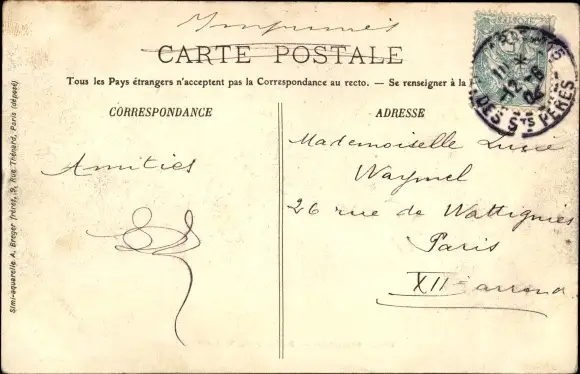 Imprimés
CARTE POSTALE
Tous les Pays étrangers n'acceptent pas la Correspondance au recto. — Se renseigner à la
CORRESPONDANCE
Amitiés
ADRESSE
Mademoiselle Lucie
Waymel
26 rue de Wattignies
Paris
XII arrond
DES Sts PÈRES
Simi-aquarelle A. Breger frères, 9, Rue Thénard, Paris (déposé)